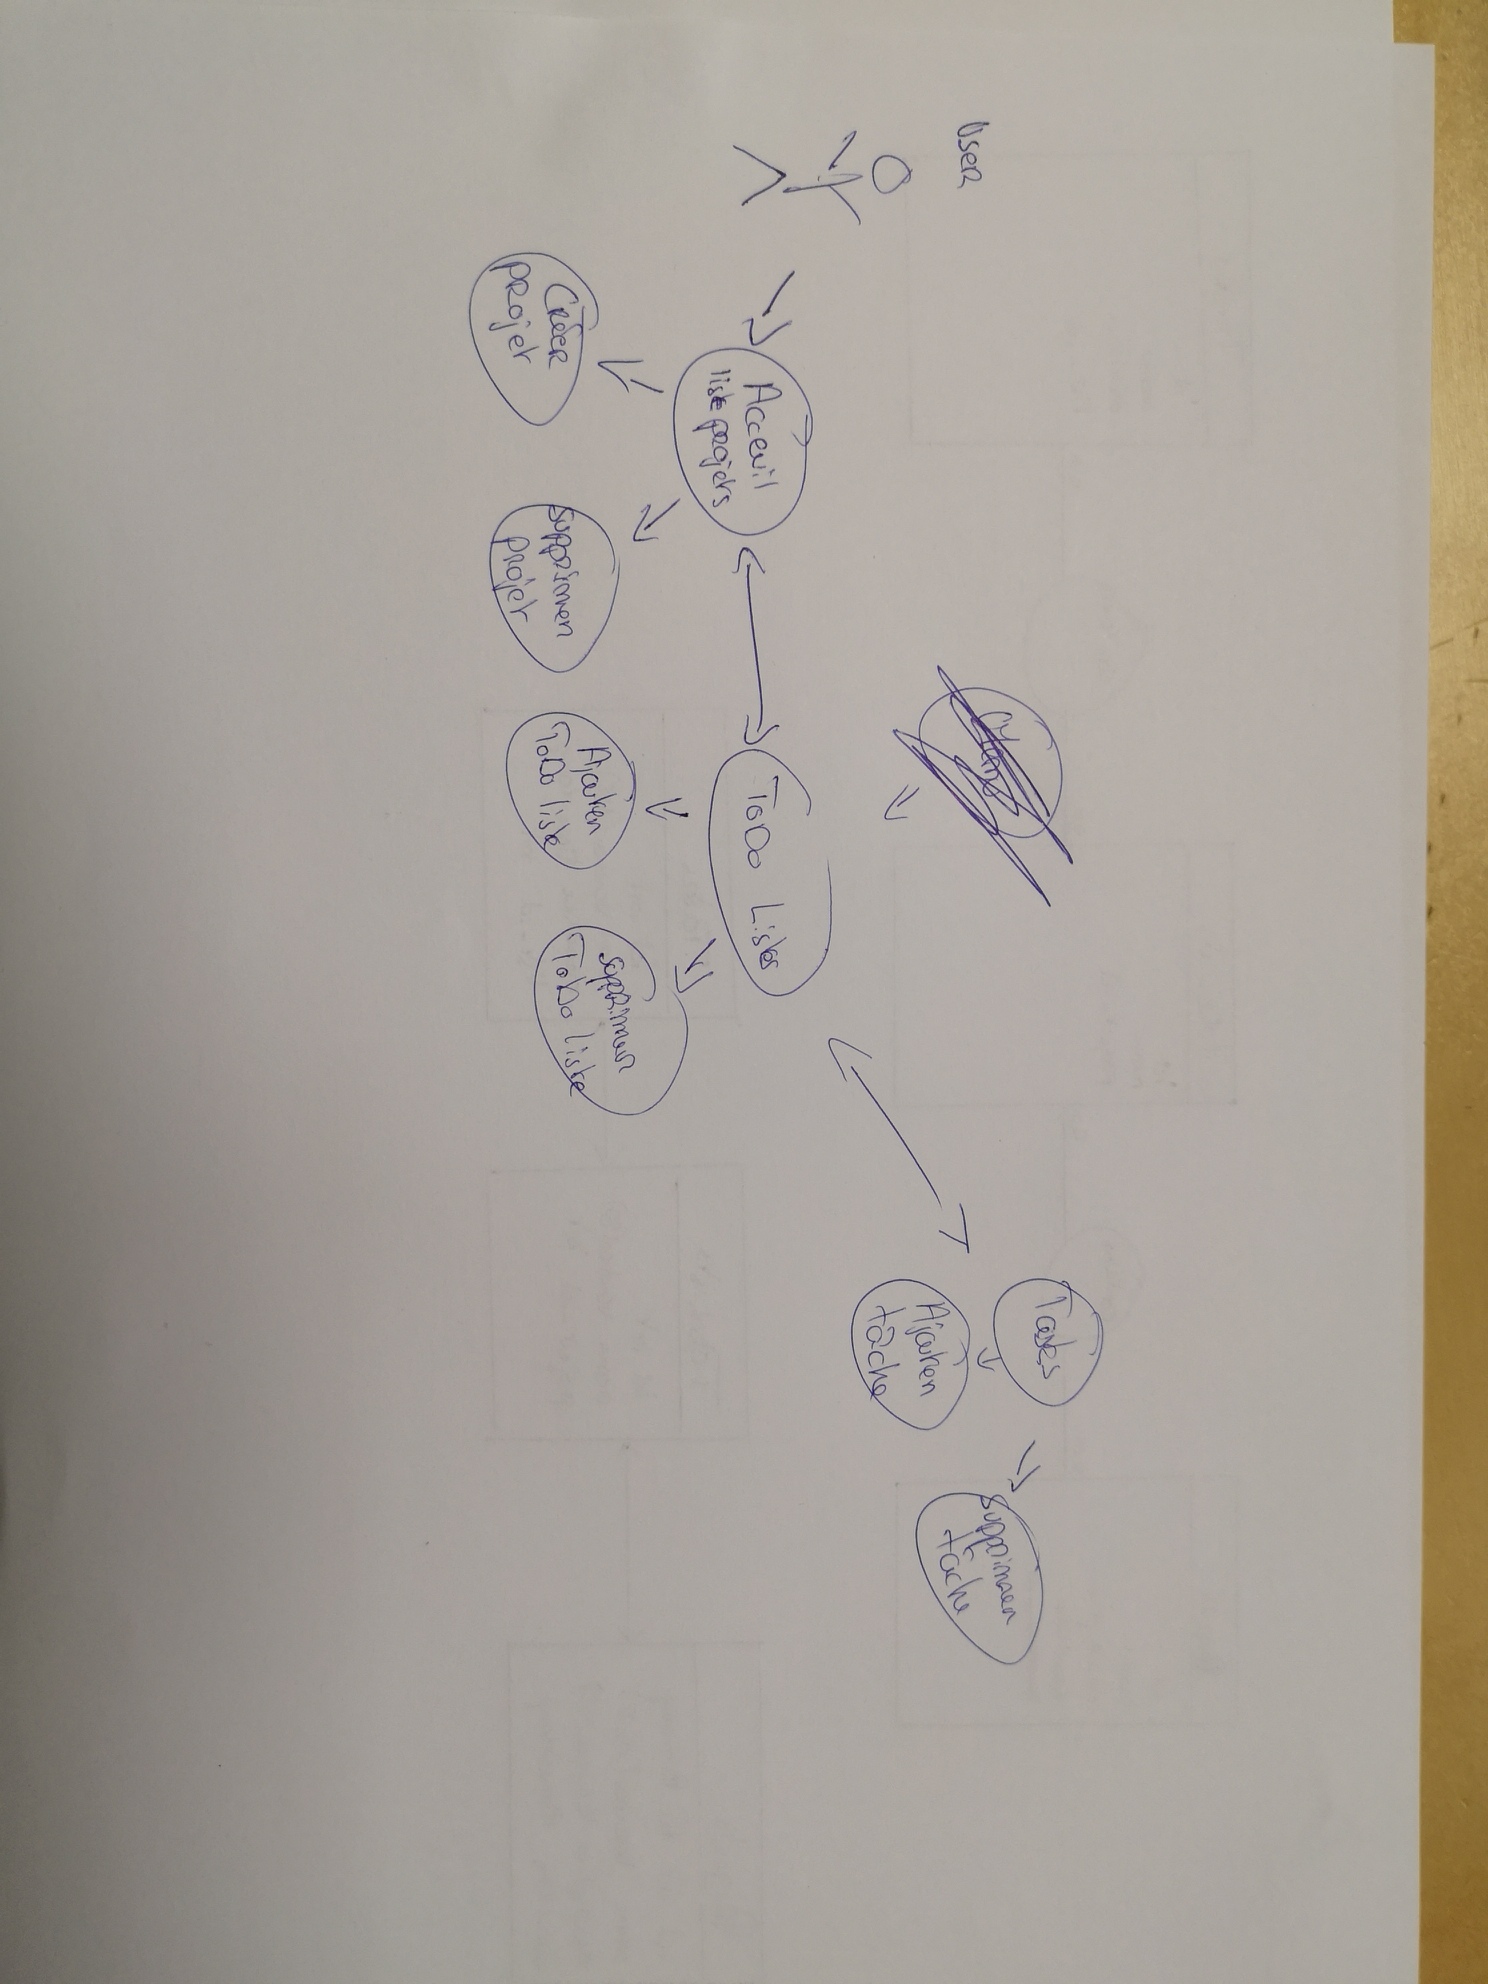 USER
Acceuil
liste projets
Créer
projet
Supprimer
projet
ToDo Listes
Ajouter
ToDo liste
Supprimer
ToDo liste
Tasks
Ajouter
tâche
Supprimer
tâche